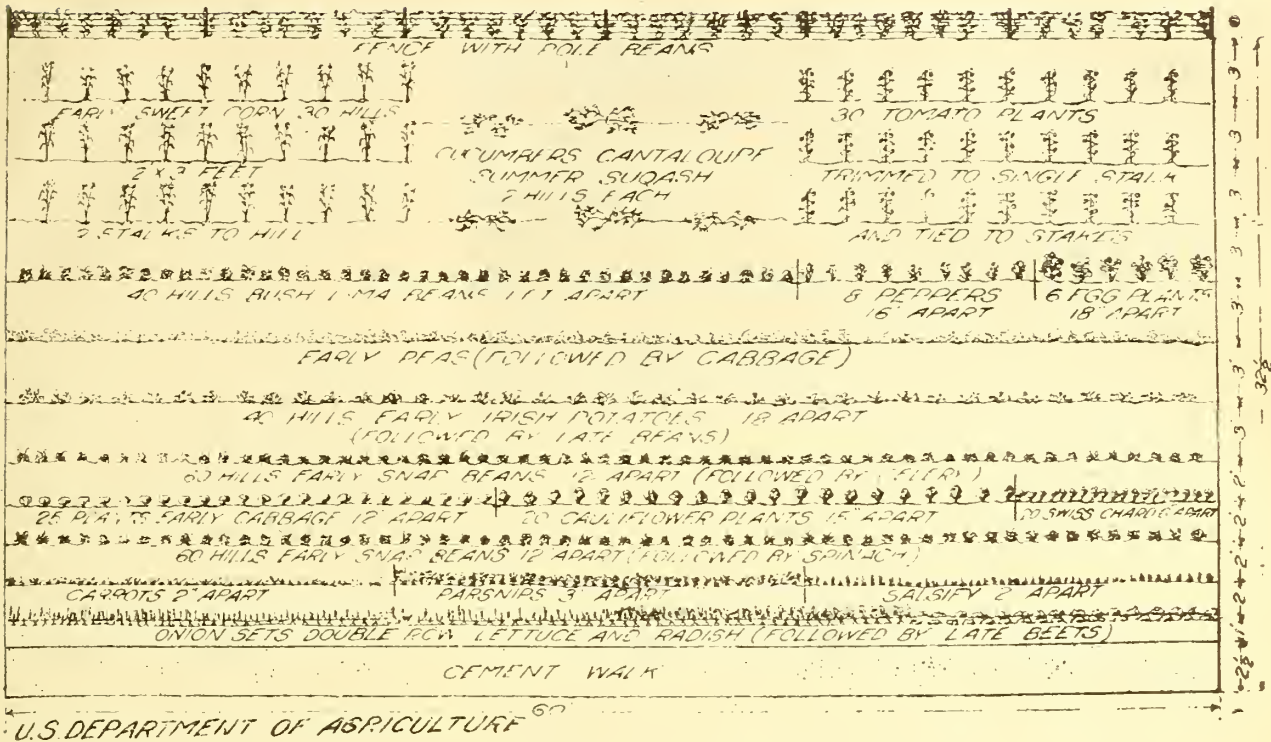 FENCE WITH POLE BEANS
EARLY SWEET CORN 30 HILLS
30 TOMATO PLANTS
2 X 3 FEET
CUCUMBERS CANTALOUPE
SUMMER SUQASH
2 HILLS EACH
TRIMMED TO SINGLE STALK
2 STALKS TO HILL
AND TIED TO STAKES
40 HILLS BUSH LIMA BEANS 1 FT APART
8 PEPPERS
16" APART
6 EGG PLANTS
18" APART
EARLY PEAS (FOLLOWED BY CABBAGE)
40 HILLS EARLY IRISH POTATOES 18 APART
(FOLLOWED BY LATE BEANS)
60 HILLS EARLY SNAP BEANS 12 APART (FOLLOWED BY CELERY)
25 PLANTS EARLY CABBAGE 12 APART
20 CAULIFLOWER PLANTS 15 APART
20 SWISS CHARD 6 APART
60 HILLS EARLY SNAP BEANS 12 APART (FOLLOWED BY SPINACH)
CARROTS 2" APART
PARSNIPS 3" APART
SALSIFY 2" APART
ONION SETS DOUBLE ROW LETTUCE AND RADISH (FOLLOWED BY LATE BEETS)
CEMENT WALK
60
U.S. DEPARTMENT OF AGRICULTURE